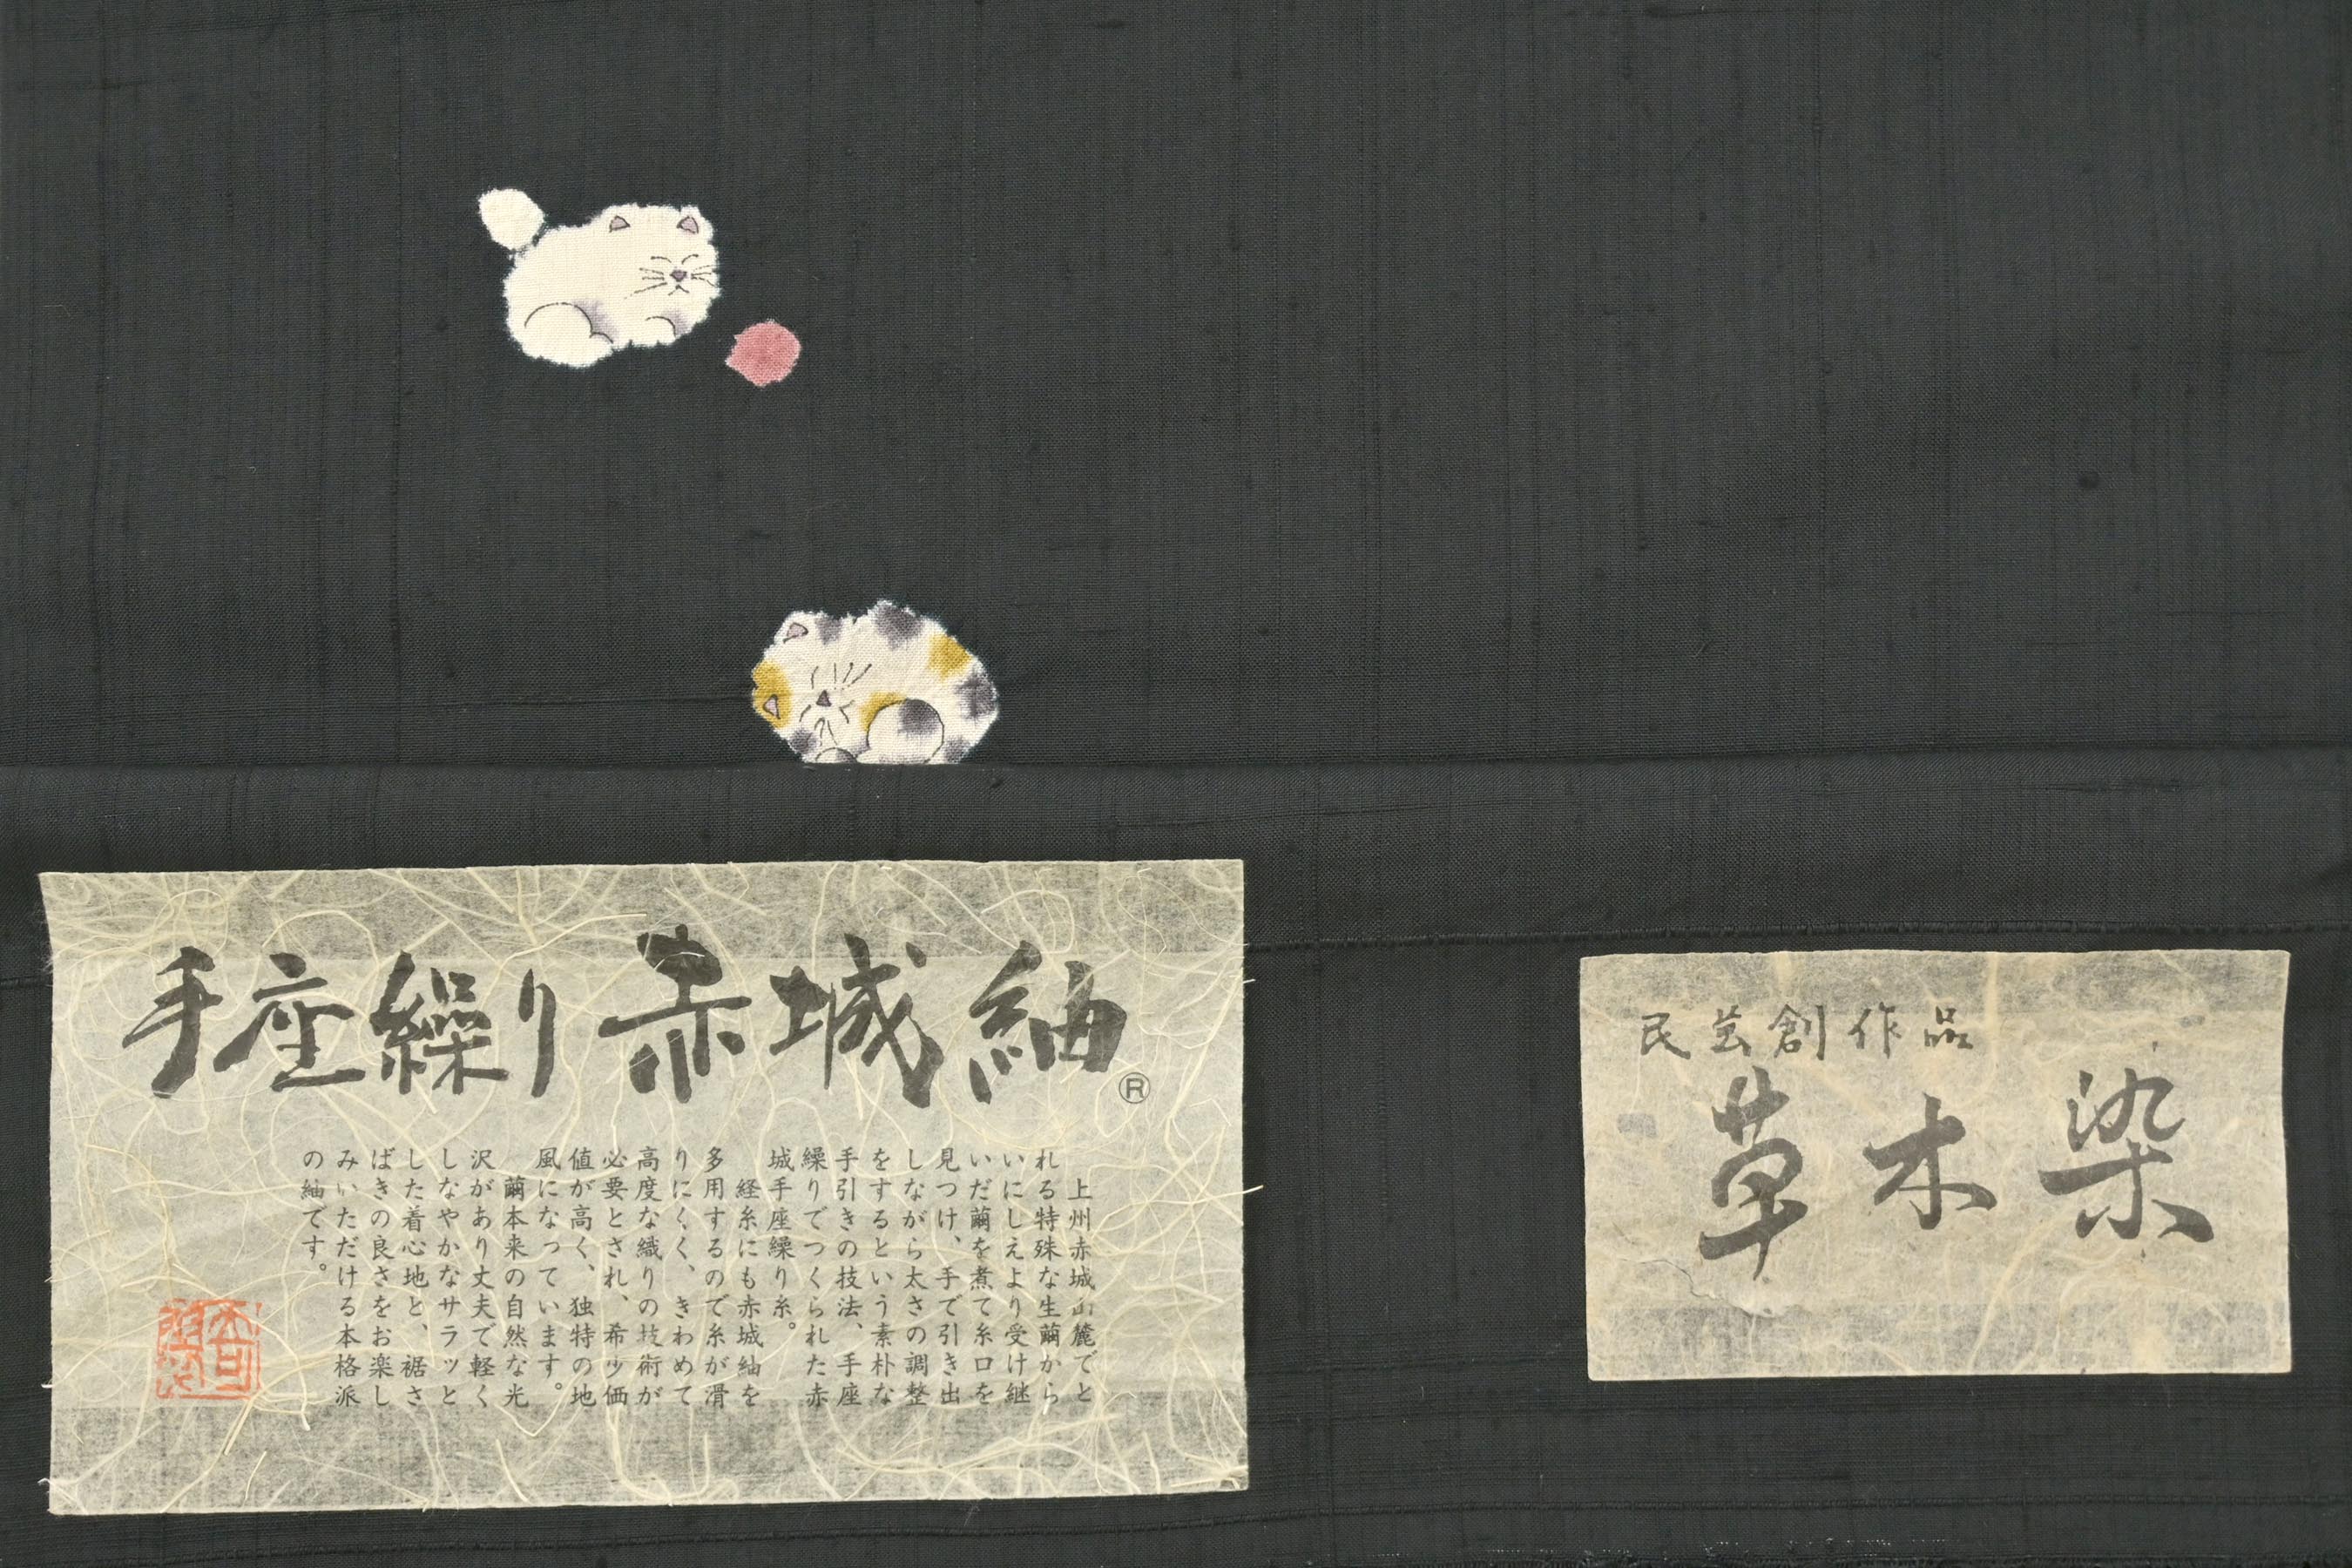 手座繰り赤城紬
®
上州赤城山麓でと
れる特殊な生繭から
いにしえより受け継
いだ繭を煮て糸口を
見つけ、手で引き出
しながら太さの調整
をするという素朴な
手引きの技法、手座
繰りでつくられた赤
城手座繰り糸。
経糸にも赤城紬を
多用するので糸が滑
りにくく、きわめて
高度な織りの技術が
必要とされ、希少価
値が高く、独特の地
風になっています。
繭本来の自然な光
沢があり丈夫で軽く
しなやかなサラッと
した着心地と、裾さ
ばきの良さをお楽し
みいただける本格派
の紬です。
民芸創作品
草木染